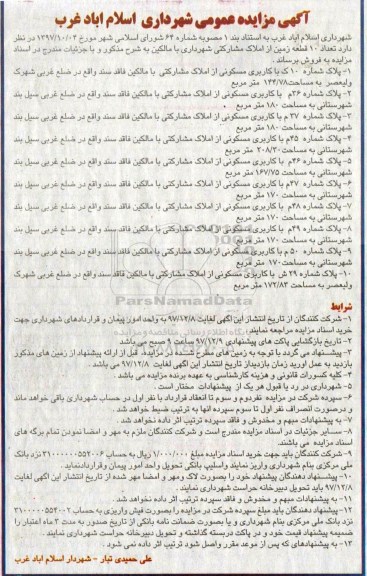 آگهی مزایده عمومی شهرداری اسلام اباد غرب
شهرداری اسلام اباد غرب به استناد بند ۱ مصوبه شماره ۶۴ شورای اسلامی شهر مورخ ۱۳۹۷/۱۰/۰۳ در نظر
دارد تعداد ۱۰ قطعه زمین از املاک مشارکتی شهرداری با مالکین به شرح مذکور و با جزئیات مندرج در اسناد
مزایده به فروش برساند.
۱- پلاک شماره ۱۰ ک با کاربری مسکونی از املاک مشارکتی با مالکین فاقد سند واقع در ضلع غربی شهرک
ولیعصر به مساحت ۱۴۴/۷۸ متر مربع
۲- پلاک شماره ۳۶م با کاربری مسکونی از املاک مشارکتی با مالکین فاقد سند واقع در ضلع غربی سیل بند
شهرستانی به مساحت ۱۸۰ متر مربع
۳- پلاک شماره ۳۷ م با کاربری مسکونی از املاک مشارکتی با مالکین فاقد سند واقع در ضلع غربی سیل بند
شهرستانی به مساحت ۱۸۰ متر مربع
۴- پلاک شماره ۴۵م با کاربری مسکونی از املاک مشارکتی با مالکین فاقد سند واقع در ضلع غربی سیل بند
شهرستانی به مساحت ۲۰۸/۳۰ متر مربع
۵- پلاک شماره ۴۶م با کاربری مسکونی از املاک مشارکتی با مالکین فاقد سند واقع در ضلع غربی سیل بند
شهرستانی به مساحت ۱۶۷/۷۵ متر مربع
۶- پلاک شماره ۴۷م با کاربری مسکونی از املاک مشارکتی با مالکین فاقد سند واقع در ضلع غربی سیل بند
شهرستانی به مساحت ۱۷۰ متر مربع
۷- پلاک شماره ۴۸م با کاربری مسکونی از املاک مشارکتی با مالکین فاقد سند واقع در ضلع غربی سیل بند
شهرستانی به مساحت ۱۷۰ متر مربع
۸- پلاک شماره ۴۹م با کاربری مسکونی از املاک مشارکتی با مالکین فاقد سند واقع در ضلع غربی سیل بند
شهرستانی به مساحت ۱۷۰ متر مربع
۹- پلاک شماره ۵۰ م با کاربری مسکونی از املاک مشارکتی با مالکین فاقد سند واقع در ضلع غربی سیل بند
شهرستانی به مساحت ۱۷۰ متر مربع
۱۰- پلاک شماره ۲۹ ش با کاربری مسکونی از املاک مشارکتی با مالکین فاقد سند واقع در ضلع غربی شهرک
ولیعصر به مساحت ۱۷۲/۸۳ متر مربع
ParsNamadData
شرایط
۱- شرکت کنندگان از تاریخ انتشار این آگهی لغایت ۹۷/۱۲/۸ به واحد امور پیمان و قراردادهای شهرداری جهت
خرید اسناد مزایده مراجعه نمایند
۲- تاریخ بازگشایی پاکت های پیشنهادی ۹۷/۱۲/۹ ساعت ۹ صبح می باشد
۳- پیشنهاد می گردد با توجه به زمین های مطرح شده در مزایده، قبل از ارائه پیشنهاد از زمین های مذکور
بازدید به عمل اورید زمان بازدید از تاریخ انتشار این آگهی لغایت ۹۷/۱۲/۸ می باشد
۴- کلیه کسورات قانونی و هزینه کارشناسی به عهده برنده مزایده می باشد
۵- شهرداری در رد یا قبول هر یک از پیشنهادات مختار است.
۶- سپرده شرکت در مزایده نفردوم و سوم تا انعقاد قرارداد با نفر اول در حساب شهرداری باقی خواهد ماند
و درصورت انصراف نفر اول تا سوم سپرده انها به ترتیب ضبط خواهد شد
۷- به پیشنهادات مبهم و مخدوش و فاقد سپرده ترتیب اثر داده نخواهد شد.
۸- سایر جزئیات در اسناد مزایده مندرج است و شرکت کنندگان ملزم به مهر و امضا نمودن تمام برگه های
اسناد مزایده می باشند.
۹- شرکت کنندگان باید جهت خرید اسناد مزایده مبلغ ۱/۰۰۰/۰۰۰ ریال به حساب ۳۱۰۰۰۰۰۵۵۲۰۰۶ نزد بانک
ملی مرکزی بنام شهرداری واریز نمایند واسلیپ بانکی تحویل واحد امور پیمان وقراردادنماید.
۱۰- پیشنهاد دهندگان پیشنهاد خود را بصورت لاک ومهر و امضا مهر شده از تاریخ انتشار این آگهی لغایت
۹۷/۱۲/۸ باید تحویل دبیرخانه حراست شهرداری نمایند.
۱۱- به پیشنهادات مبهم و مخدوش و فاقد سپرده ترتیب اثر داده نخواهد شد.
۱۲- پیشنهاد دهندگان باید مبلغ سپرده شرکت در مزایده را بصورت فیش واریزی به حساب ۳۱۰۰۰۰۰۵۵۴۰۰۲
نزد بانک ملی مرکزی بنام شهرداری و یا بصورت ضمانت نامه بانکی از تاریخ صدور به مدت ۳ ماه اعتبار را
ضمیمه پیشنهاد قیمت خود و در پاکت دربسته گذاشته و تحویل دبیرخانه حراست شهرداری نمایند.
۱۳- به پیشنهادهای که پس از موعد مقرر واصل شود ترتیب اثر داده نمی شود.
علی حمیدی تبار - شهردار اسلام اباد غرب